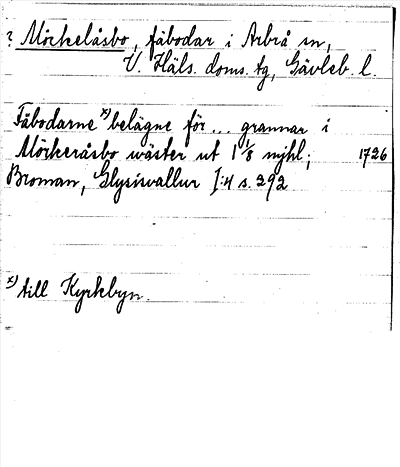 ? Möckelåsbo, fäbodar i Arbrå sn,
V. Häls. doms. tg, Gävleb. l.
Fäbodarne x) belägne för... grannar i
Möckeråsbo wäster ut 1 1/8 mjhl; 1726
Broman, Glysisvallur I:4 s. 292
x) till Kyrkbyn.